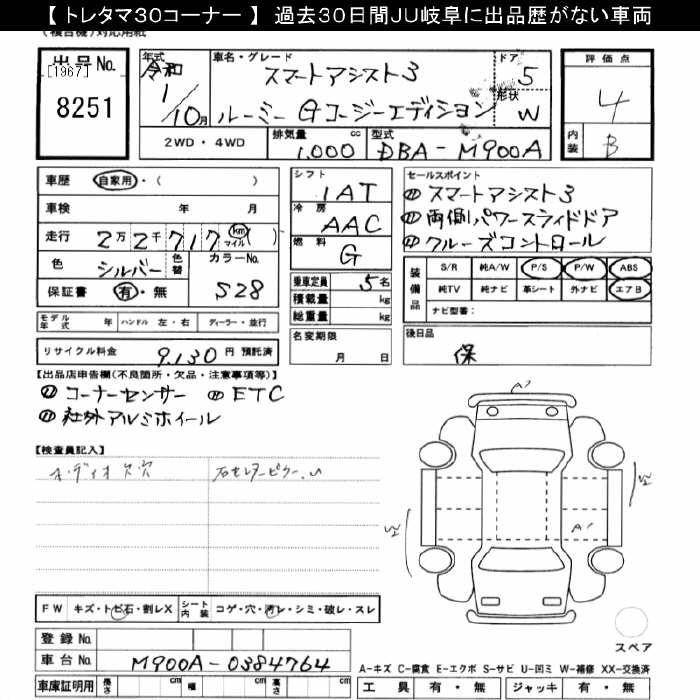 【トレタマ30コーナー】 過去30日間JU岐阜に出品歴がない車両
(複合機)対応用紙
出品No.
[1967]
8251
年式 車名・グレード ドア 評価点
令和 スマートアシスト3 5 4
1/10月 ルーミー Gコージーエディション 形状 W
内装 B
2WD・4WD 排気量 1,000 cc 型式 DBA-M900A
車歴 自家用・( )
車検 年 月
走行 2万2千717 km マイル ( )
色 シルバー 色替 カラーNo. S28
保証書 有・無
モデル年式 年 ハンドル 左・右 ディーラー・並行
リサイクル料金 9,130 円 預託済
シフト 1AT
冷房 AAC
燃料 G
乗車定員 5名
積載量 kg
総重量 kg
名変期限
月 日
セールスポイント
スマートアシスト3
両側パワースライドドア
クルーズコントロール
装備品 S/R 純A/W P/S P/W ABS
純TV 純ナビ 革シート 外ナビ エアB
ナビ型番:
後日品
保
【出品店申告欄(不良箇所・欠品・注意事項等)】
コーナーセンサー ETC
社外アルミホイール
【検査員記入】
オーディオ欠穴
FW キズ・トビ石・割レX シート内装 コゲ・穴・汚レ・シミ・破レ・スレ
登録No.
車台No. M900A-0384764
車庫証明用 長さ cm 幅 cm 高さ cm
A'
A'
スペア
A-キズ C-腐食 E-エクボ S-サビ U-凹ミ W-補修 XX-交換済
工具 有・無 ジャッキ 有・無